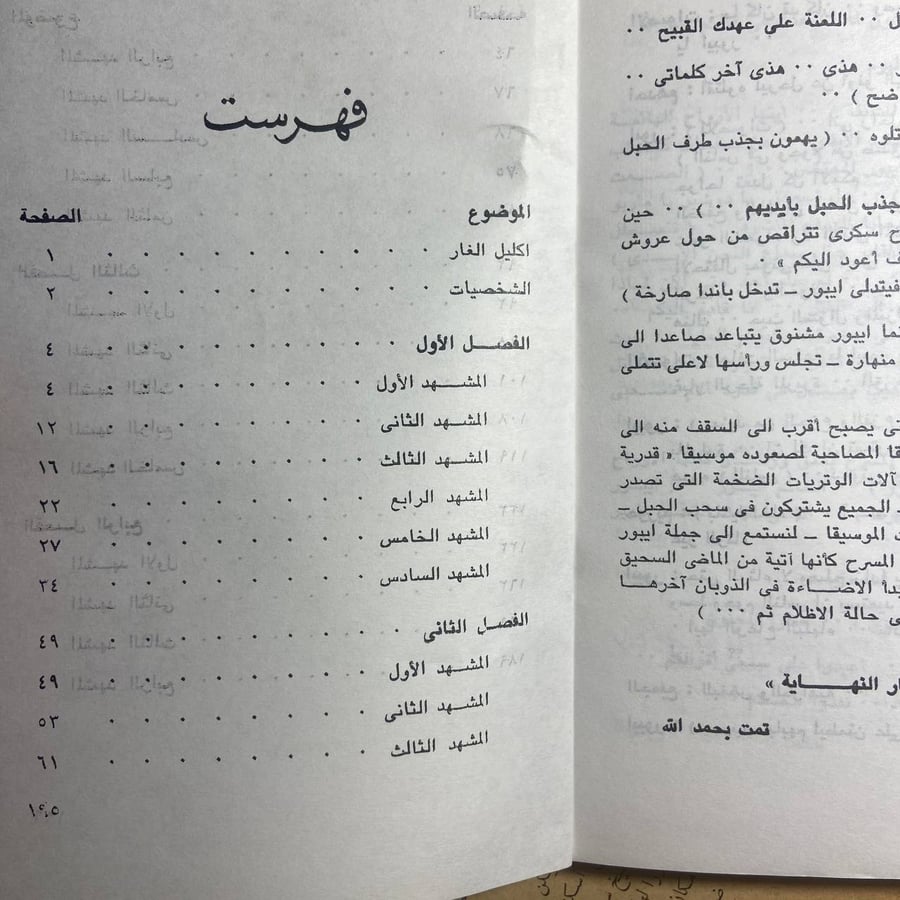 ل ٠٠ اللعنة على عهدك القبيح ٠٠
٠٠ هذى ٠٠ هذى آخر كلماتى ٠٠
ضح ) ٠٠
تلوه ٠٠ ( يهمون بجذب طرف الحبل
جذب الحبل بايديهم ٠٠ ) ٠٠ حين
ح سكرى تتراقص من حول عروش
ف أعود اليكم » ٠
فيتدلى ايبور ــ تدخل باندا صارخة )
نما ايبور مشنوق يتباعد صاعدا الى
منهارة ــ تجلس ورأسها لاعلى تتملى
تى يصبح أقرب الى السقف منه الى
قا المصاحبة لصعوده موسيقا « قدرية
آلات الوتريات الضخمة التى تصدر
ـ الجميع يشتركون فى سحب الحبل ــ
ت الموسيقا ــ لنستمع الى جملة ايبور
المسرح كأنها آتية من الماضى السحيق
بدأ الاضاءة فى الذوبان آخرها
ى حالة الاظلام ثم ٠٠٠ )
ار النهاية »
تمت بحمد الله
فهرست
الموضوع الصفحة
اكليل الغار ١
الشخصيات ٢
الفصل الأول ٤
المشهد الأول ٤
المشهد الثانى ١٢
المشهد الثالث ١٦
المشهد الرابع ٢٢
المشهد الخامس ٢٧
المشهد السادس ٣٤
الفصل الثانى ٤٩
المشهد الأول ٤٩
المشهد الثانى ٥٣
المشهد الثالث ٦١
١٩٥